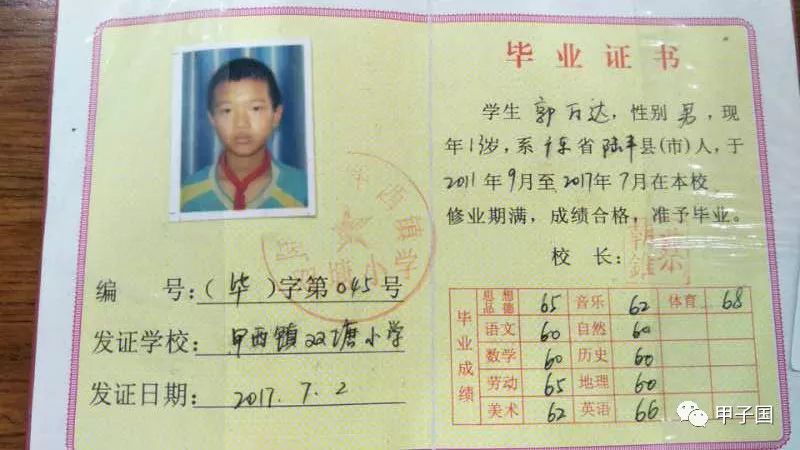 编 号:(毕)字第045号
发证学校: 甲西镇双塘小学
发证日期: 2017.7.2
毕业证书
学生 郭万达,性别 男,现
年13岁,系广东省陆丰县(市)人,于
2011年9月至2017年7月在本校
修业期满,成绩合格,准予毕业。
校 长:
毕业成绩
思想品德 65 音乐 62 体育 68
语文 60 自然 60
数学 60 历史 60
劳动 65 地理 60
美术 62 英语 66
甲子国